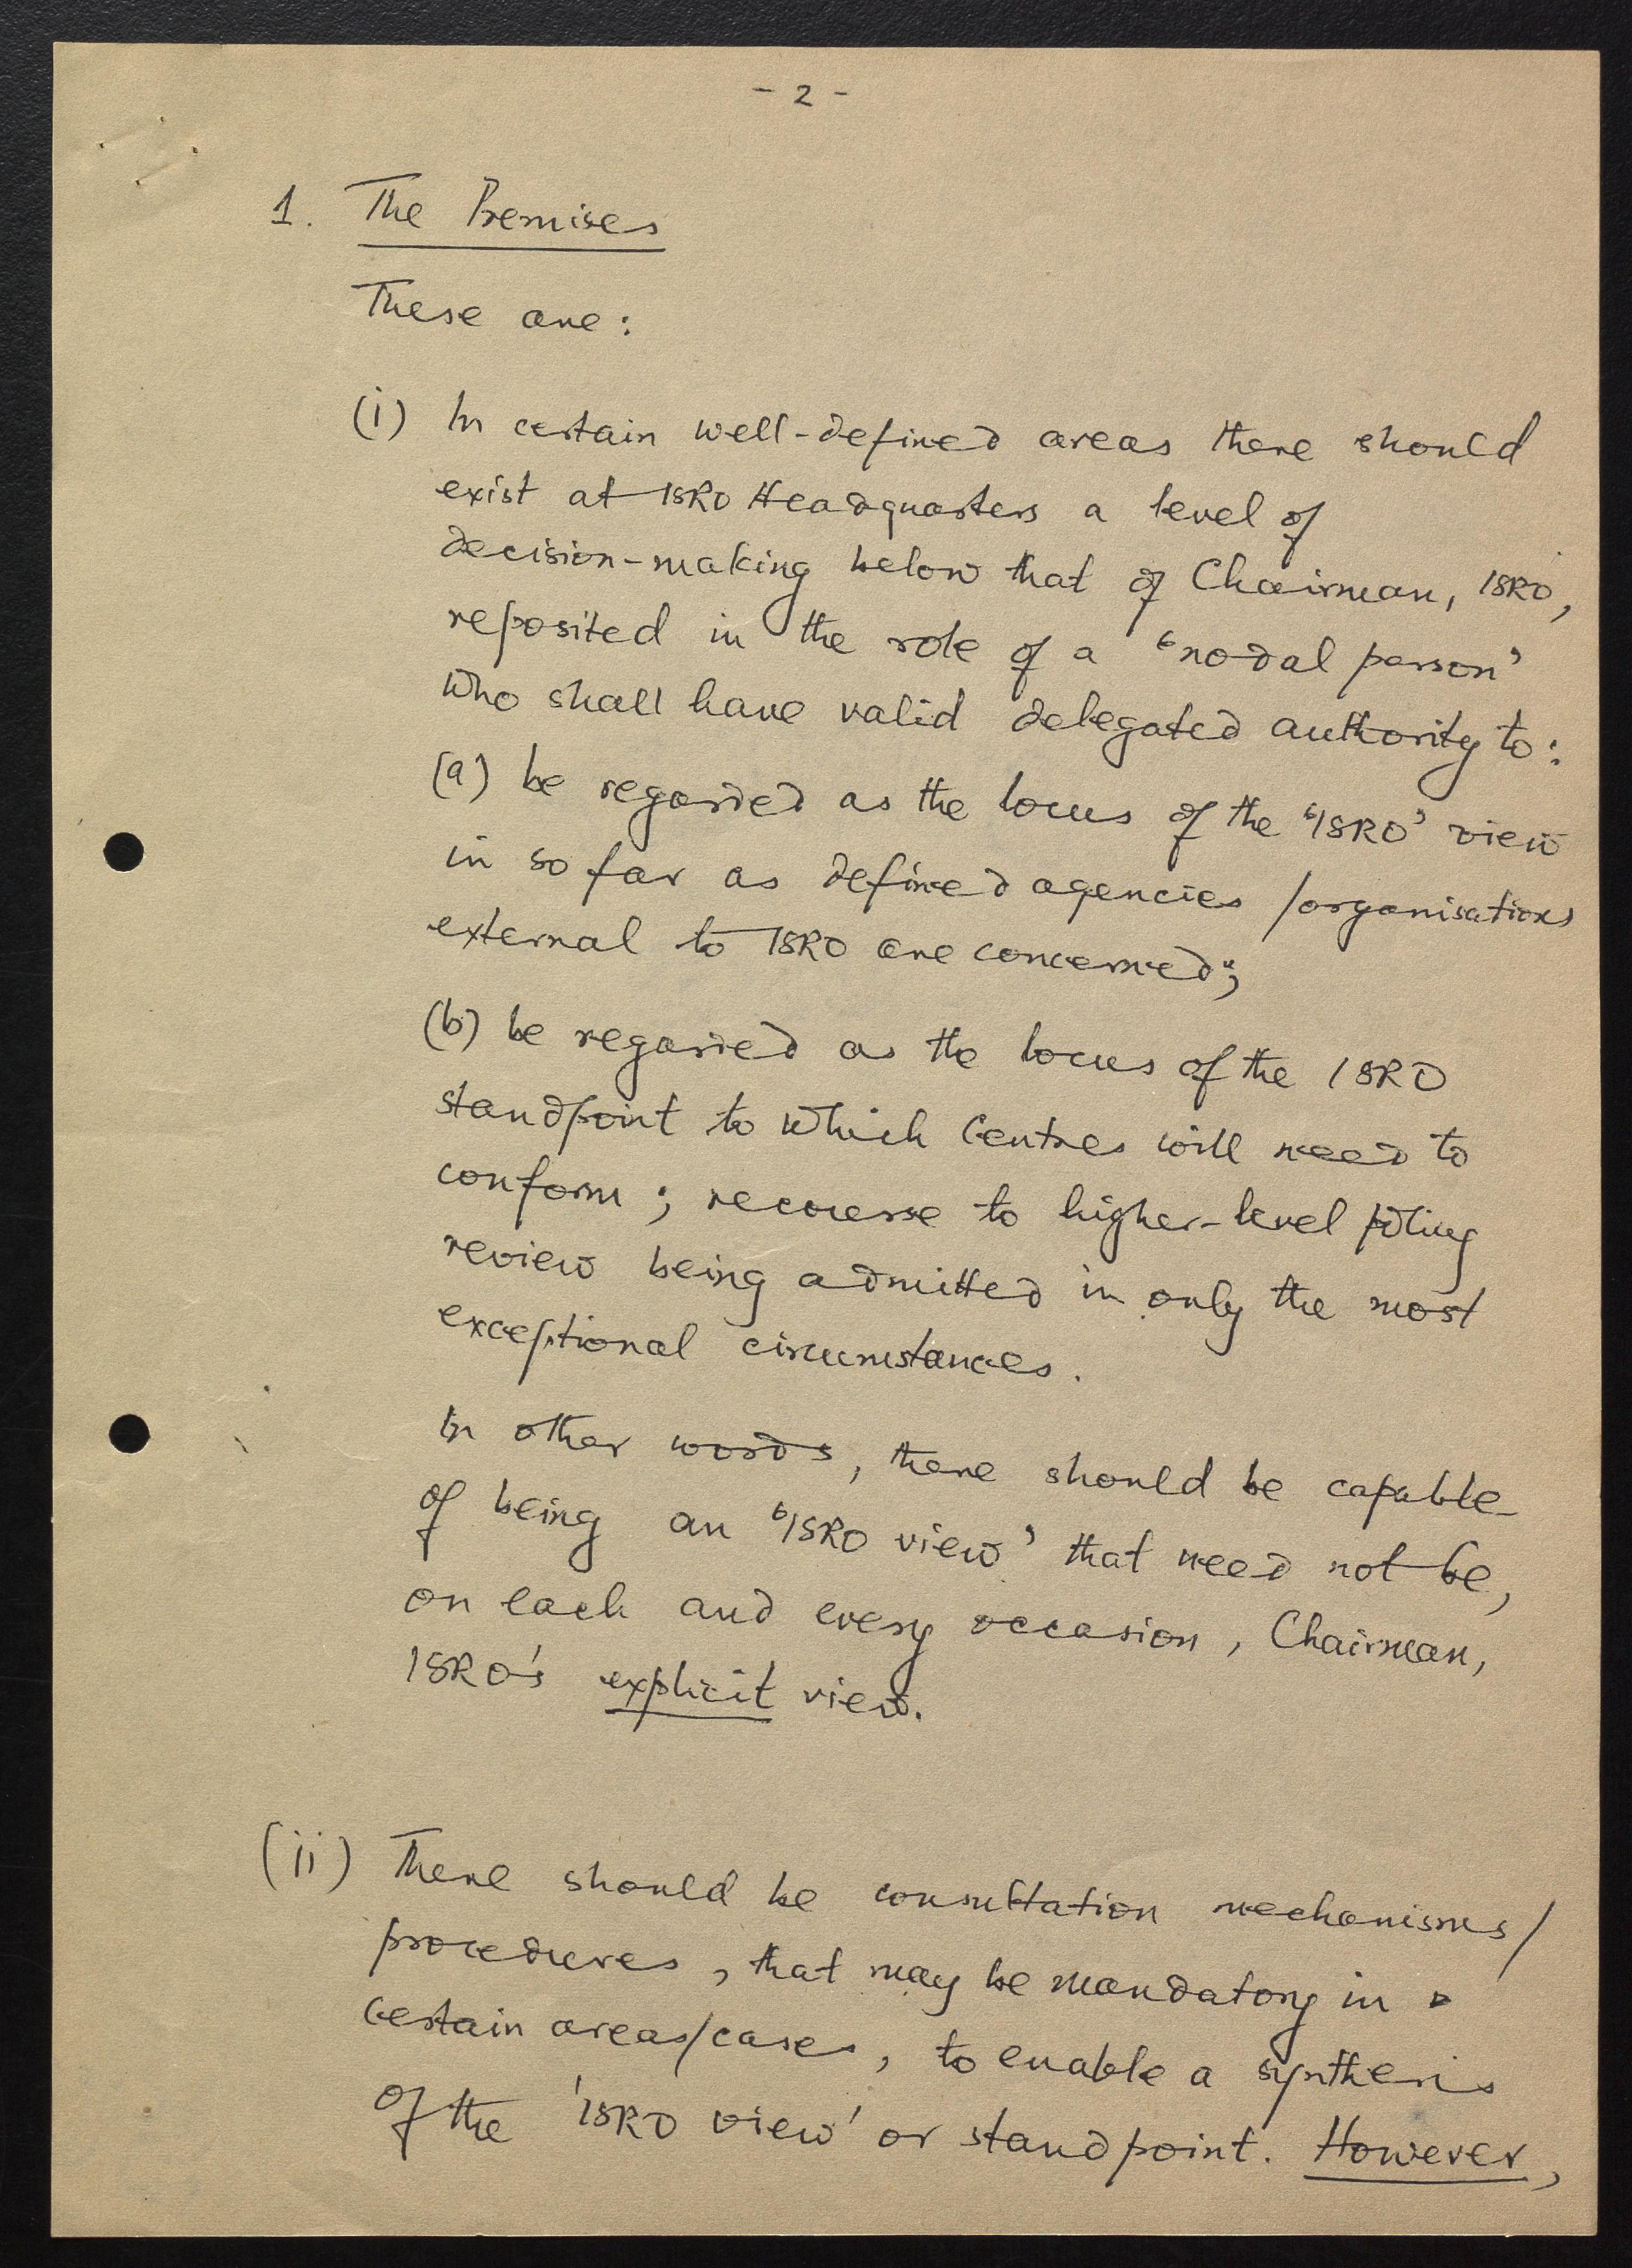 - 2 -
1. The Premises
These are:
(i) In certain well-defined areas there should
exist at ISRO Headquarters a level of
decision-making below that of Chairman, ISRO,
reposited in the role of a 'nodal person'
who shall have valid delegated authority to:
(a) be regarded as the locus of the 'ISRO' view
in so far as defined agencies/organisations
external to ISRO are concerned;
(b) be regarded as the locus of the ISRO
standpoint to which Centres will need to
conform; recourse to higher-level
review being admitted in only the most
exceptional circumstances.
In other words, there should be capable
of being an 'ISRO view' that need not be,
on each and every occasion, Chairman,
ISRO's explicit view.
(ii) There should be consultation mechanisms/
procedures, that may be mandatory in
certain areas/cases, to enable a synthesis
of the 'ISRO view' or standpoint. However,